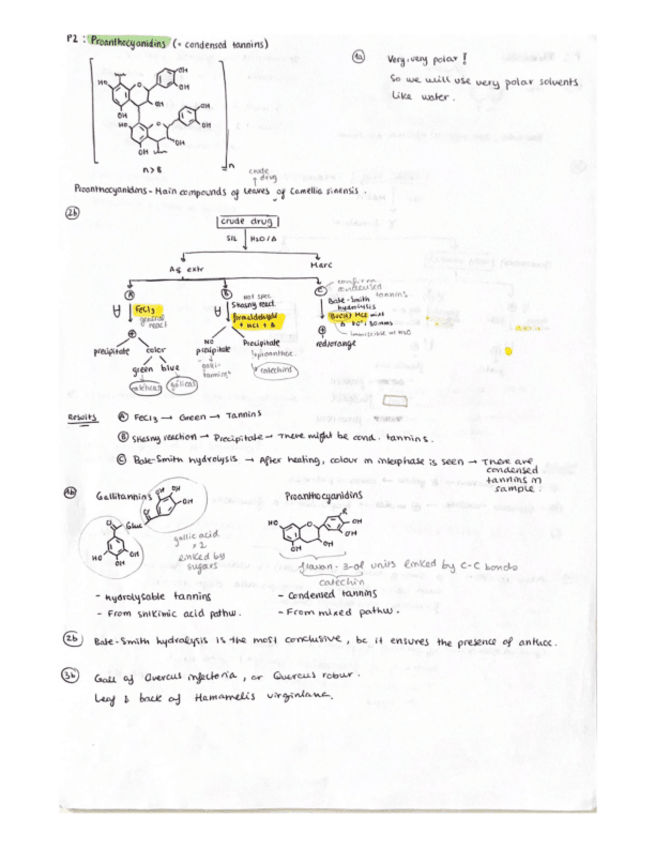 P2 : Proanthocyanidins (= condensed tannins)
1a Very, very polar !
So we will use very polar solvents
like water.
HO
OH
OH
OH
OH
HO
OH
OH
OH
OH
n > 8
n
crude
drug
Proanthocyanidins - Main compounds of leaves of Camellia sinensis.
2b
crude drug
S/L H2O/Δ
Aq extr
Marc
A
B
C
confirm
condensed
tannins
FeCl3
general
react
not spec
Stiasny react.
formaldehyde
+ HCl + Δ
Bate-Smith
hydrolysis
Δ 80° 30 mins
immiscible w H2O
precipitate
color
green
blue
NO
precipitate
Precipitate
catechins
red/orange
Results
A FeCl3 → Green → Tannins
B Stiasny reaction → Precipitate → There might be cond. tannins.
C Bate-Smith hydrolysis → After heating, colour in interphase is seen → There are
condensed
tannins in
sample.
4b
Gallitannins
Proanthocyanidins
OH
OH
OH
O
Gluc
O
HO
OH
OH
gallic acid
x 2
linked by
sugars
HO
O
R
OH
OH
OH
OH
flavan-3-ol units linked by C-C bonds
catechin
- Hydrolysable tannins
- Condensed tannins
- From shikimic acid pathw.
- From mixed pathw.
2b Bate-Smith hydrolysis is the most conclusive, bc it ensures the presence of anthoc.
3b Gall of Quercus infectoria, or Quercus robur.
Leaf & back of Hamamelis virginiana.